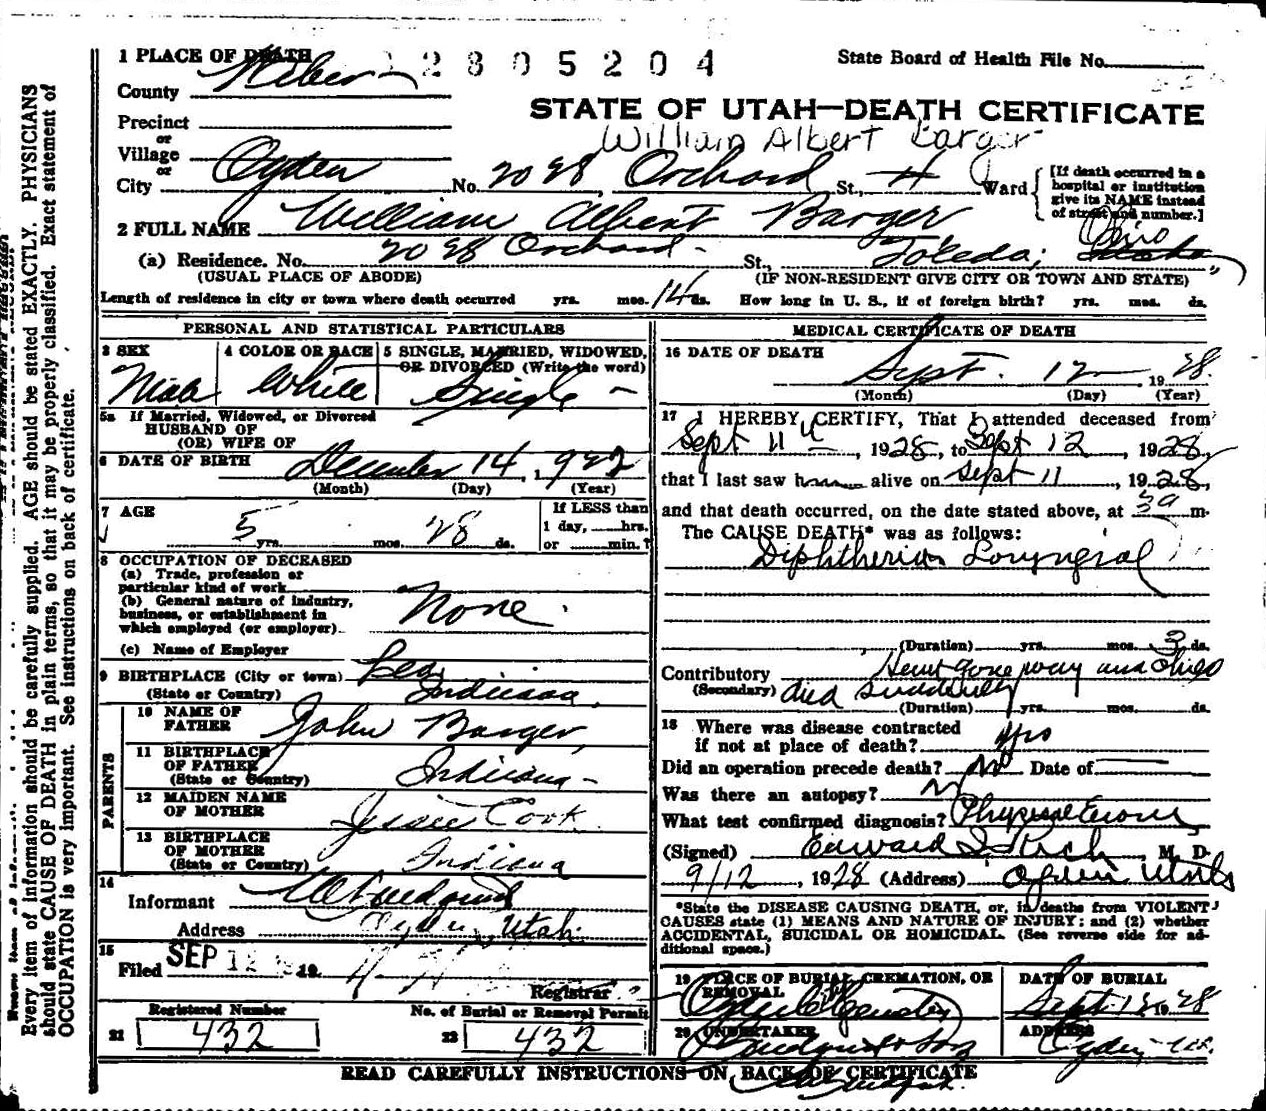 1 PLACE OF DEATH 12805204 State Board of Health File No.
County Weber
STATE OF UTAH—DEATH CERTIFICATE
Precinct
William Albert Barger
or
Village
or
City Ogden No. 2098 Orchard St., 4 Ward
[If death occurred in a hospital or institution give its NAME instead of street and number.]
2 FULL NAME William Albert Barger
(a) Residence. No. 2098 Orchard St., Toledo, Ohio
(USUAL PLACE OF ABODE) (IF NON-RESIDENT GIVE CITY OR TOWN AND STATE)
Length of residence in city or town where death occurred yrs. mos. 14 ds. How long in U. S., if of foreign birth? yrs. mos. ds.
PERSONAL AND STATISTICAL PARTICULARS
3 SEX 4 COLOR OR RACE 5 SINGLE, MARRIED, WIDOWED, OR DIVORCED (Write the word)
Male White Single
5a If Married, Widowed, or Divorced
HUSBAND OF
(OR) WIFE OF
6 DATE OF BIRTH December 14, 1922
(Month) (Day) (Year)
7 AGE 5 yrs. mos. 28 ds. If LESS than 1 day, hrs. or min.?
8 OCCUPATION OF DECEASED
(a) Trade, profession or
particular kind of work
(b) General nature of industry,
business, or establishment in
which employed (or employer) None
(c) Name of Employer
9 BIRTHPLACE (City or town)
(State or Country) Indiana
PARENTS
10 NAME OF FATHER John Barger
11 BIRTHPLACE OF FATHER (State or Country) Indiana
12 MAIDEN NAME OF MOTHER Jessie Cook
13 BIRTHPLACE OF MOTHER (State or Country) Indiana
14
Informant
Address Ogden, Utah
15
Filed SEP 12 19
Registrar
Registered Number No. of Burial or Removal Permit
21 432 22 432
MEDICAL CERTIFICATE OF DEATH
16 DATE OF DEATH
Sept. 12 1928
(Month) (Day) (Year)
17 I HEREBY CERTIFY, That I attended deceased from
Sept 11, 1928, to Sept 12, 1928,
that I last saw h alive on Sept 11, 1928,
and that death occurred, on the date stated above, at 3a m.
The CAUSE DEATH* was as follows:
Diphtheria Laryngeal
(Duration) yrs. mos. 3 ds.
Contributory Heart gone way and child
(Secondary) died suddenly
(Duration) yrs. mos. ds.
18 Where was disease contracted
if not at place of death?
Did an operation precede death? No Date of
Was there an autopsy? N
What test confirmed diagnosis? Physical
(Signed) Edward I. Rich, M. D.
9/12, 1928 (Address) Ogden Utah
*State the DISEASE CAUSING DEATH, or, in deaths from VIOLENT
CAUSES state (1) MEANS AND NATURE OF INJURY; and (2) whether
ACCIDENTAL, SUICIDAL OR HOMICIDAL. (See reverse side for ad-
ditional space.)
19 PLACE OF BURIAL, CREMATION, OR REMOVAL DATE OF BURIAL
Ogden City Cemetery Sept 1928
20 UNDERTAKER ADDRESS
Ogden
READ CAREFULLY INSTRUCTIONS ON BACK OF CERTIFICATE
Every item of information should be carefully supplied. AGE should be stated EXACTLY. PHYSICIANS
should state CAUSE OF DEATH in plain terms, so that it may be properly classified. Exact statement of
OCCUPATION is very important. See instructions on back of certificate.